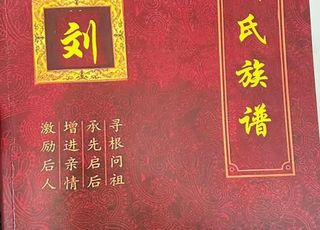 氏族谱
刘
寻根问祖
承先启后
增进亲情
激励后人